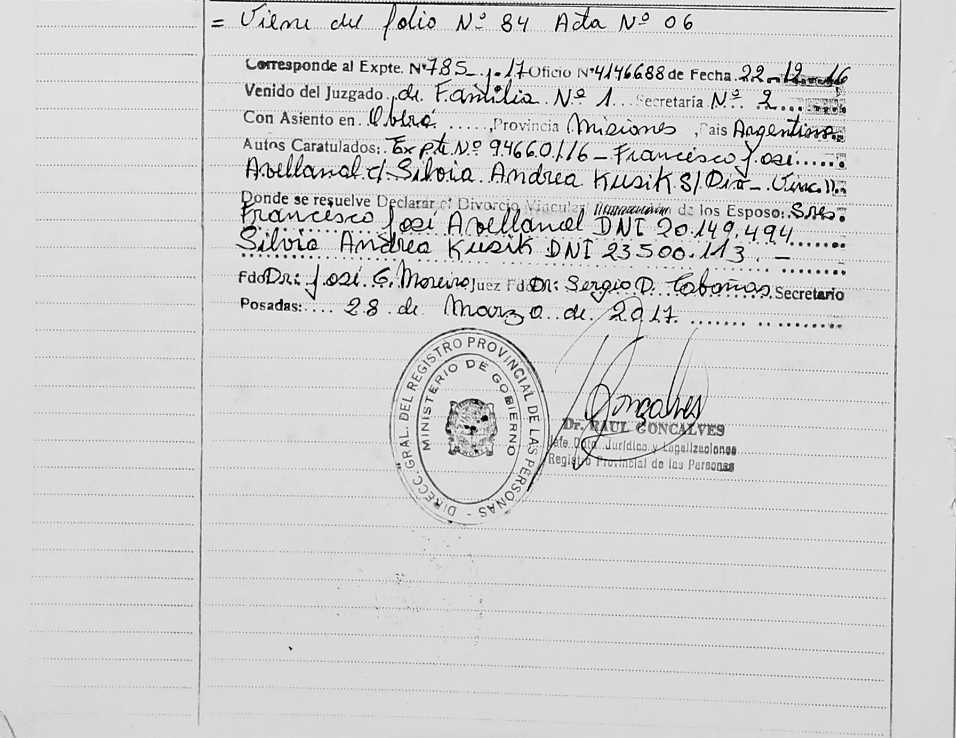 = Viene del folio Nº 84 Acta Nº 06
Corresponde al Expte. Nº 785-j-17 Oficio Nº 4146688 de Fecha 22-12-16
Venido del Juzgado de Familia Nº 1 Secretaría Nº 2
Con Asiento en Oberá, Provincia Misiones, Pais Argentina
Autos Caratulados: Expte Nº 94660/16 - Francisco José
Avellanal c/ Silvia Andrea Kusik S/ Div- Vinc
Donde se resuelve Declarar el Divorcio Vincular de los Esposo: Sres.
Francisco José Avellanal DNI 20.149.494
Silvia Andrea Kusik DNI 23500.113. -
Fdo Dr: José G. Moreiro Juez Fdo Dr: Sergio D. Cabañas Secretario
Posadas: 28 de Marzo de 2017
DIRECC. GRAL. DEL REGISTRO PROVINCIAL DE LAS PERSONAS -
MINISTERIO DE GOBIERNO
Gonçalves
Dr. RAUL GONCALVES
Jefe Dpto. Jurídico y Legalizaciones
Registro Provincial de las Personas